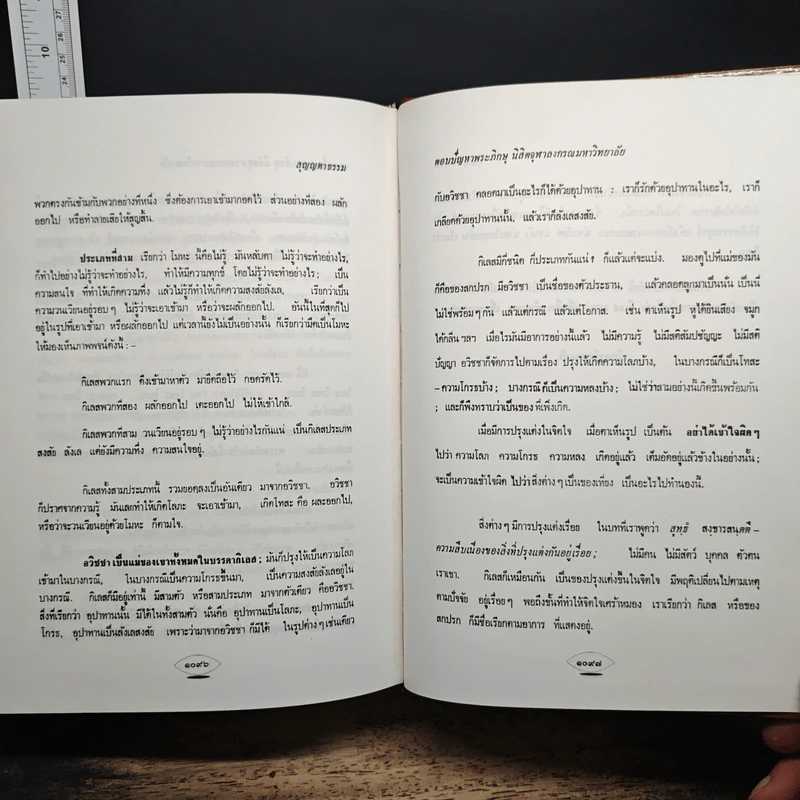 10
27
26
25
24
สุญญตาธรรม
พวกตรงกันข้ามกับพวกอย่างที่หนึ่ง ซึ่งต้องการเอาเข้ามากอดไว้ ส่วนอย่างที่สอง ผลัก
ออกไป หรือทำลายเสียให้สูญสิ้น.
ประเภทที่สาม เรียกว่า โมหะ นี้คือไม่รู้ มันหลับตา ไม่รู้ว่าจะทำอย่างไร,
ก็ทำไปอย่างไม่รู้ว่าจะทำอย่างไร, ทำให้มีความทุกข์ โดยไม่รู้ว่าจะทำอย่างไร; เป็น
ความสนใจ ที่ทำให้เกิดความทึ่ง แล้วไม่รู้ก็ทำให้เกิดความสงสัยลังเล, เรียกว่าเป็น
ความวนเวียนอยู่รอบๆ ไม่รู้ว่าจะเอาเข้ามา หรือว่าจะผลักออกไป. อันนี้ในที่สุดก็ไป
อยู่ในรูปที่เอาเข้ามา หรือผลักออกไป แต่เวลานี้ยังไม่เป็นอย่างนั้น ก็เรียกว่ามืดเป็นโมหะ
ให้มองเห็นภาพพจน์ดังนี้ : –
กิเลสพวกแรก ดึงเข้ามาหาตัว มายึดถือไว้ กอดรัดไว้.
กิเลสพวกที่สอง ผลักออกไป เตะออกไป ไม่ให้เข้าใกล้.
กิเลสพวกที่สาม วนเวียนอยู่รอบๆ ไม่รู้ว่าอย่างไรกันแน่ เป็นกิเลสประเภท
สงสัย ลังเล แต่ยังมีความทึ่ง ความสนใจอยู่.
กิเลสทั้งสามประเภทนี้ รวมยอดลงเป็นอันเดียว มาจากอวิชชา. อวิชชา
ก็ปราศจากความรู้ มันเลยทำให้เกิดโลภะ จะเอาเข้ามา, เกิดโทสะ คือ ผละออกไป,
หรือว่าจะวนเวียนอยู่ด้วยโมหะ ก็ตามใจ.
อวิชชา เป็นแม่ของเขาทั้งหมดในบรรดากิเลส; มันก็ปรุงให้เป็นความโลภ
เข้ามาในบางกรณี, ในบางกรณีเป็นความโกรธขึ้นมา, เป็นความสงสัยลังเลอยู่ใน
บางกรณี. กิเลสก็มีอยู่เท่านี้ มีสามตัว หรือสามประเภท มาจากตัวเดียว คืออวิชชา.
สิ่งที่เรียกว่า อุปาทานนั้น มีได้ในทั้งสามตัว นั่นคือ อุปาทานเป็นโลภะ, อุปาทานเป็น
โกรธ, อุปาทานเป็นลังเลสงสัย เพราะว่ามาจากอวิชชา ก็มีได้ ในรูปต่างๆเช่นเดียว
๑๐๙๖
ตอบปัญหาพระภิกษุ นิสิตจุฬาลงกรณมหาวิทยาลัย
กับอวิชชา คลอดมาเป็นอะไรก็ได้ด้วยอุปาทาน : เราก็รักด้วยอุปาทานในอะไร, เราก็
เกลียดด้วยอุปาทานนั้น, แล้วเราก็ลังเลสงสัย.
กิเลสมีกี่ชนิด กี่ประเภทกันแน่? ก็แล้วแต่จะแบ่ง. มองดูไปที่แม่ของมัน
ก็คือของสกปรก มีอวิชชา เป็นชื่อของตัวประธาน, แล้วคลอดลูกมาเป็นนั่น เป็นนี่
ไม่ใช่พร้อมๆ กัน แล้วแต่กรณี แล้วแต่โอกาส. เช่น ตาเห็นรูป หูได้ยินเสียง จมูก
ได้กลิ่น ฯลฯ เมื่อไรมันมีอาการอย่างนี้แล้ว ไม่มีความรู้ ไม่มีสติสัมปชัญญะ ไม่มีสติ
ปัญญา อวิชชาก็จัดการไปตามเรื่อง ปรุงให้เกิดความโลภบ้าง, ในบางกรณีก็เป็นโทสะ
–ความโกรธบ้าง ; บางกรณีก็เป็นความหลงบ้าง; ไม่ใช่ว่าสามอย่างนี้เกิดขึ้นพร้อมกัน
; และก็พึงทราบว่าเป็นของ ที่เพิ่งเกิด.
เมื่อมีการปรุงแต่งในจิตใจ เมื่อตาเห็นรูป เป็นต้น อย่าได้เข้าใจผิดๆ
ไปว่า ความโลภ ความโกรธ ความหลง เกิดอยู่แล้ว เต็มอัดอยู่แล้วข้างในอย่างนั้น;
จะเป็นความเข้าใจผิด ไปว่าสิ่งต่างๆ เป็นของเที่ยง เป็นอะไรไปทำนองนี้.
สิ่งต่างๆ มีการปรุงแต่งเรื่อย ในบทที่เราพูดว่า สุทฺธํ สงฺขารสนฺตติ –
ความสืบเนื่องของสิ่งที่ปรุงแต่งกันอยู่เรื่อย; ไม่มีคน ไม่มีสัตว์ บุคคล ตัวตน
เราเขา. กิเลสก็เหมือนกัน เป็นของปรุงแต่งขึ้นในจิตใจ มีพฤติเปลี่ยนไปตามเหตุ
ตามปัจจัย อยู่เรื่อยๆ พอถึงขั้นที่ทำให้จิตใจเศร้าหมอง เราเรียกว่า กิเลส หรือของ
สกปรก ก็มีชื่อเรียกตามอาการ ที่แสดงอยู่.
๑๐๙๗